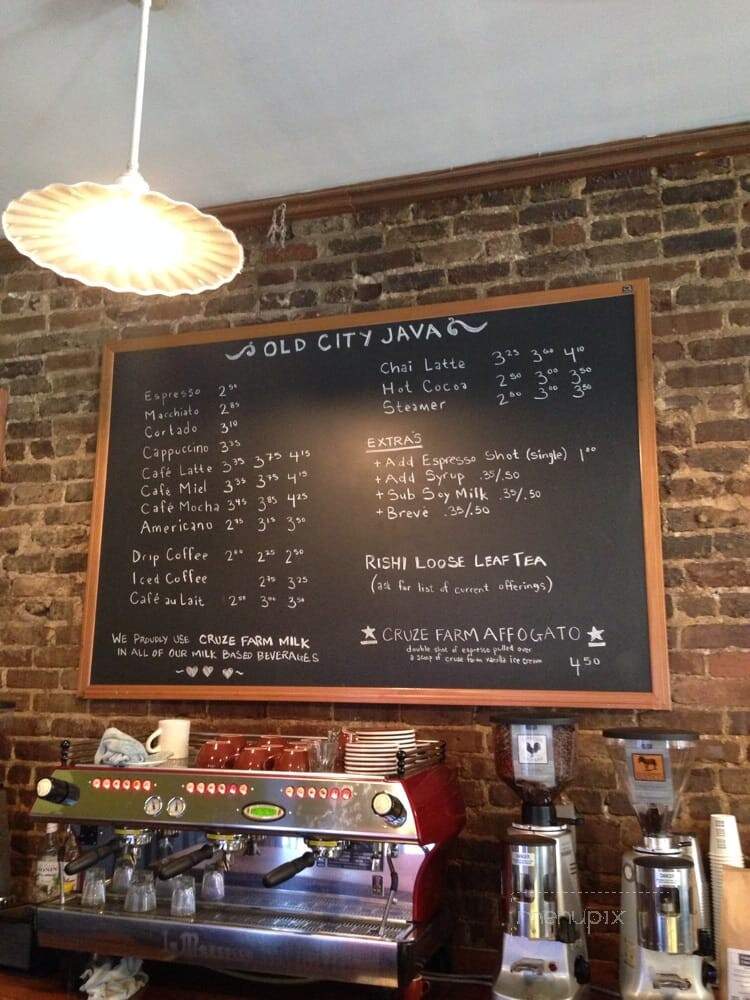 OLD CITY JAVA
Espresso 2⁵⁰
Macchiato 2⁸⁵
Cortado 3¹⁰
Cappuccino 3³⁵
Café Latte 3³⁵ 3⁷⁵ 4¹⁵
Café Miel 3³⁵ 3⁷⁵ 4¹⁵
Café Mocha 3⁴⁵ 3⁸⁵ 4²⁵
Americano 2⁷⁵ 3¹⁵ 3⁵⁰
Drip Coffee 2⁰⁰ 2²⁵ 2⁵⁰
Iced Coffee 2⁷⁵ 3²⁵
Café au Lait 2⁵⁰ 3⁰⁰ 3⁵⁰
WE PROUDLY USE CRUZE FARM MILK
IN ALL OF OUR MILK BASED BEVERAGES
Chai Latte 3²⁵ 3⁶⁰ 4¹⁰
Hot Cocoa 2⁵⁰ 3⁰⁰ 3⁵⁰
Steamer 2⁵⁰ 3⁰⁰ 3⁵⁰
EXTRA'S
+ Add Espresso Shot (single) 1⁰⁰
+ Add Syrup .35/.50
+ Sub Soy Milk .35/.50
+ Brevé .35/.50
RISHI LOOSE LEAF TEA
(ask for list of current offerings)
★ CRUZE FARM AFFOGATO ★
double shot of espresso pulled over
a scoop of cruze farm vanilla ice cream
4⁵⁰
menupix